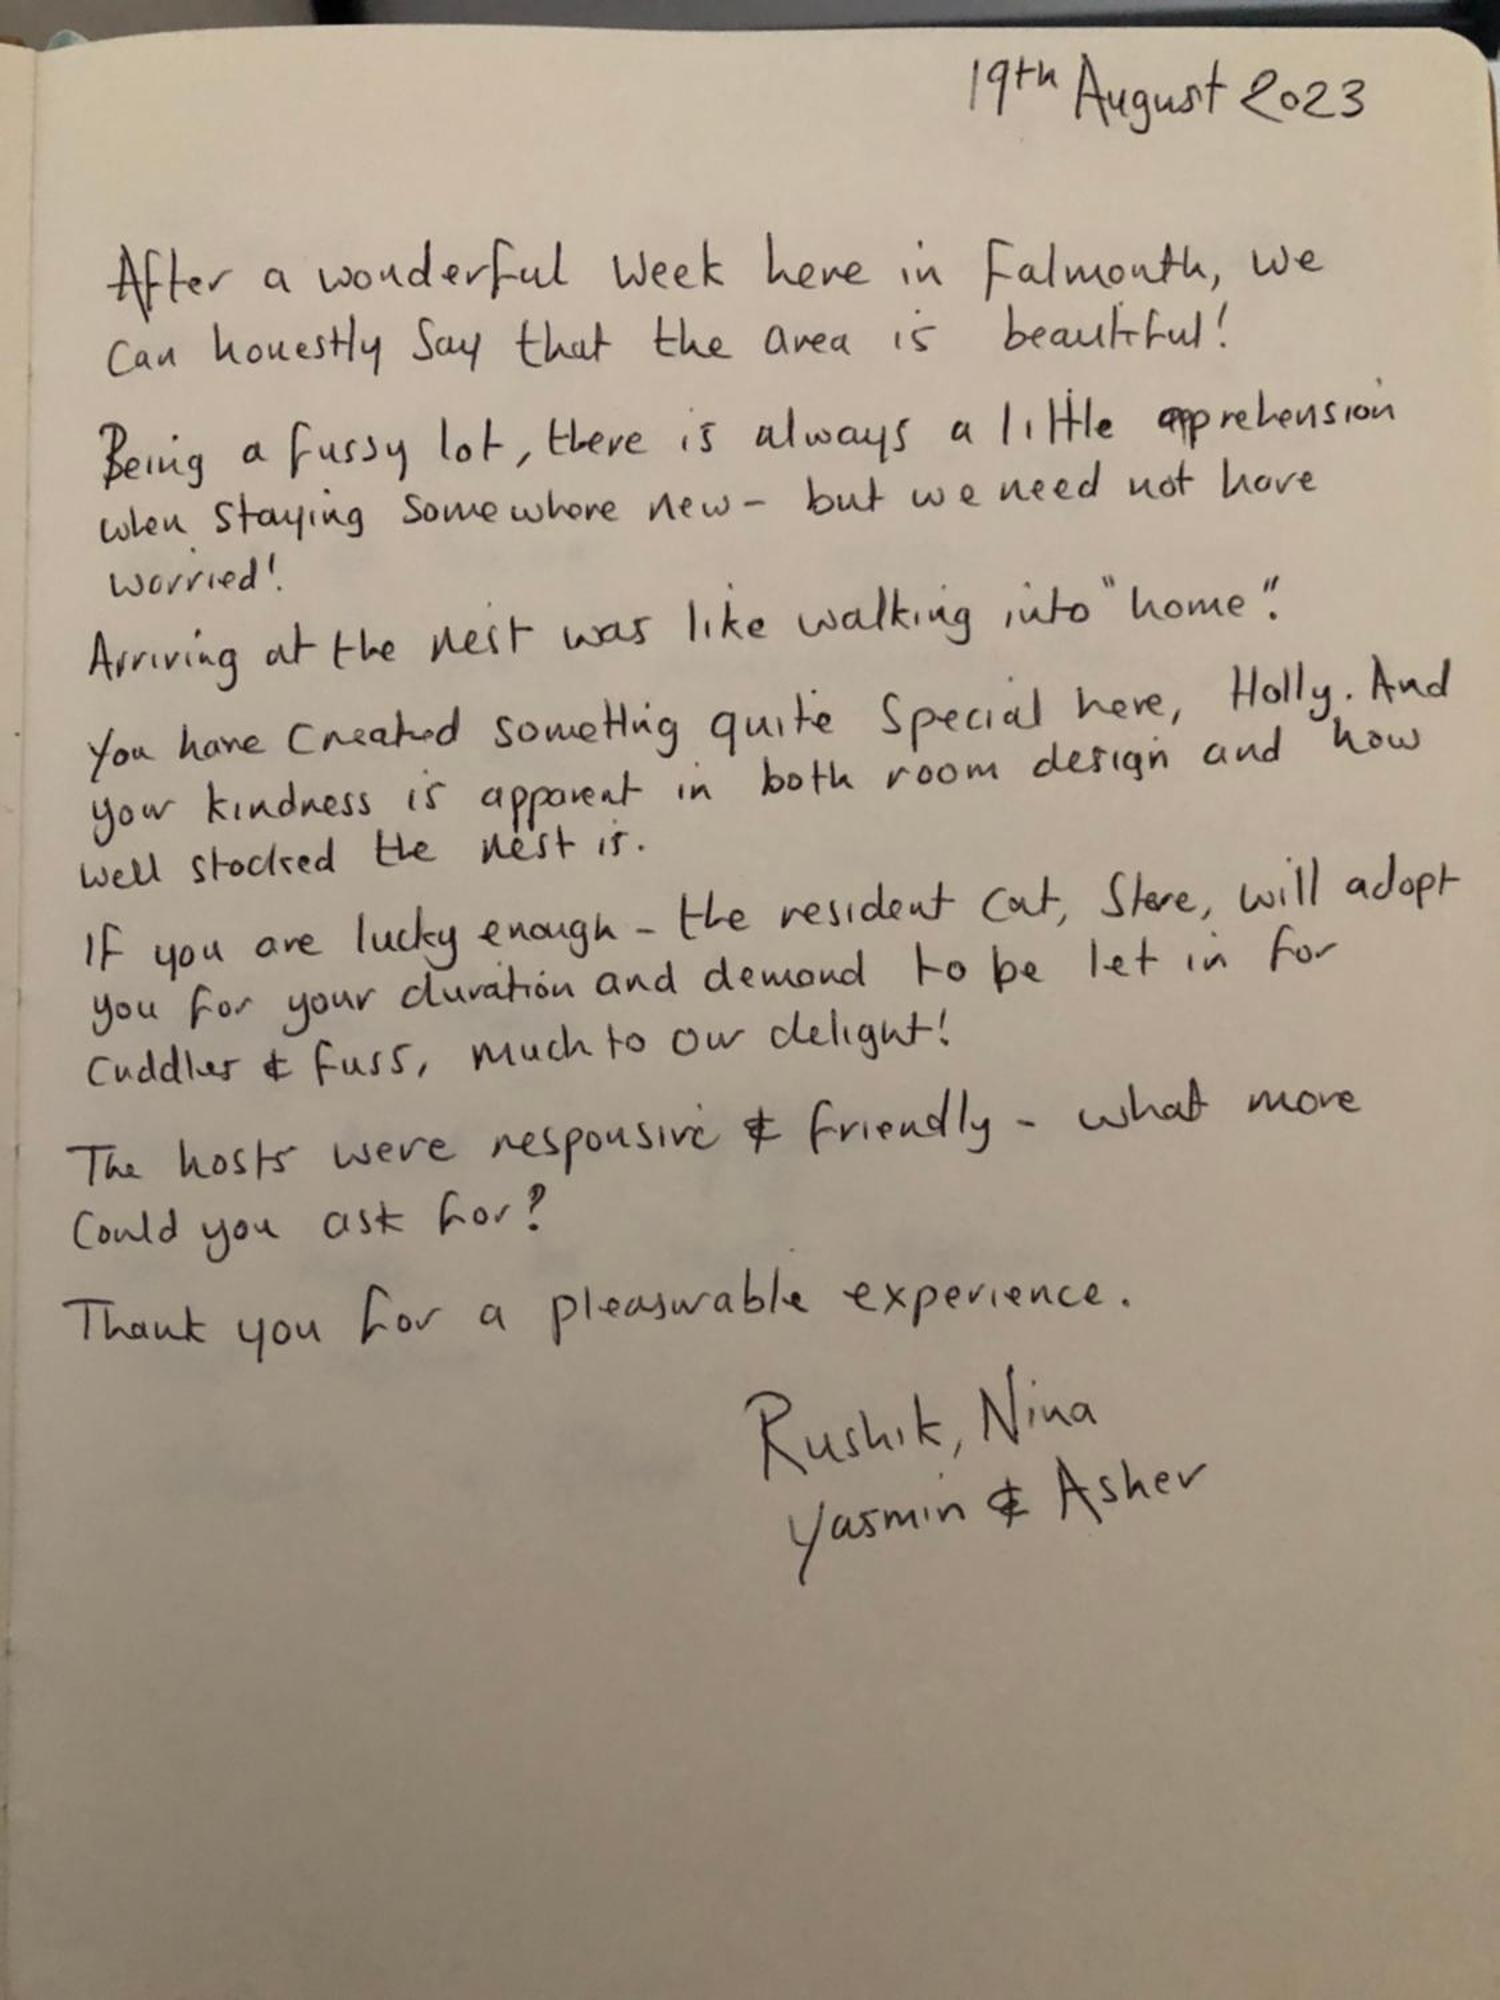 19th August 2023
After a wonderful week here in Falmouth, we
can honestly say that the area is beautiful!
Being a fussy lot, there is always a little apprehension
when staying somewhere new - but we need not have
worried!
Arriving at the nest was like walking into "home".
You have created something quite special here, Holly. And
your kindness is apparent in both room design and how
well stocked the nest is.
If you are lucky enough - the resident cat, Steve, will adopt
you for your duration and demand to be let in for
cuddles & fuss, much to our delight!
The hosts were responsive & friendly - what more
could you ask for?
Thank you for a pleasurable experience.
Rushik, Nina
Yasmin & Asher